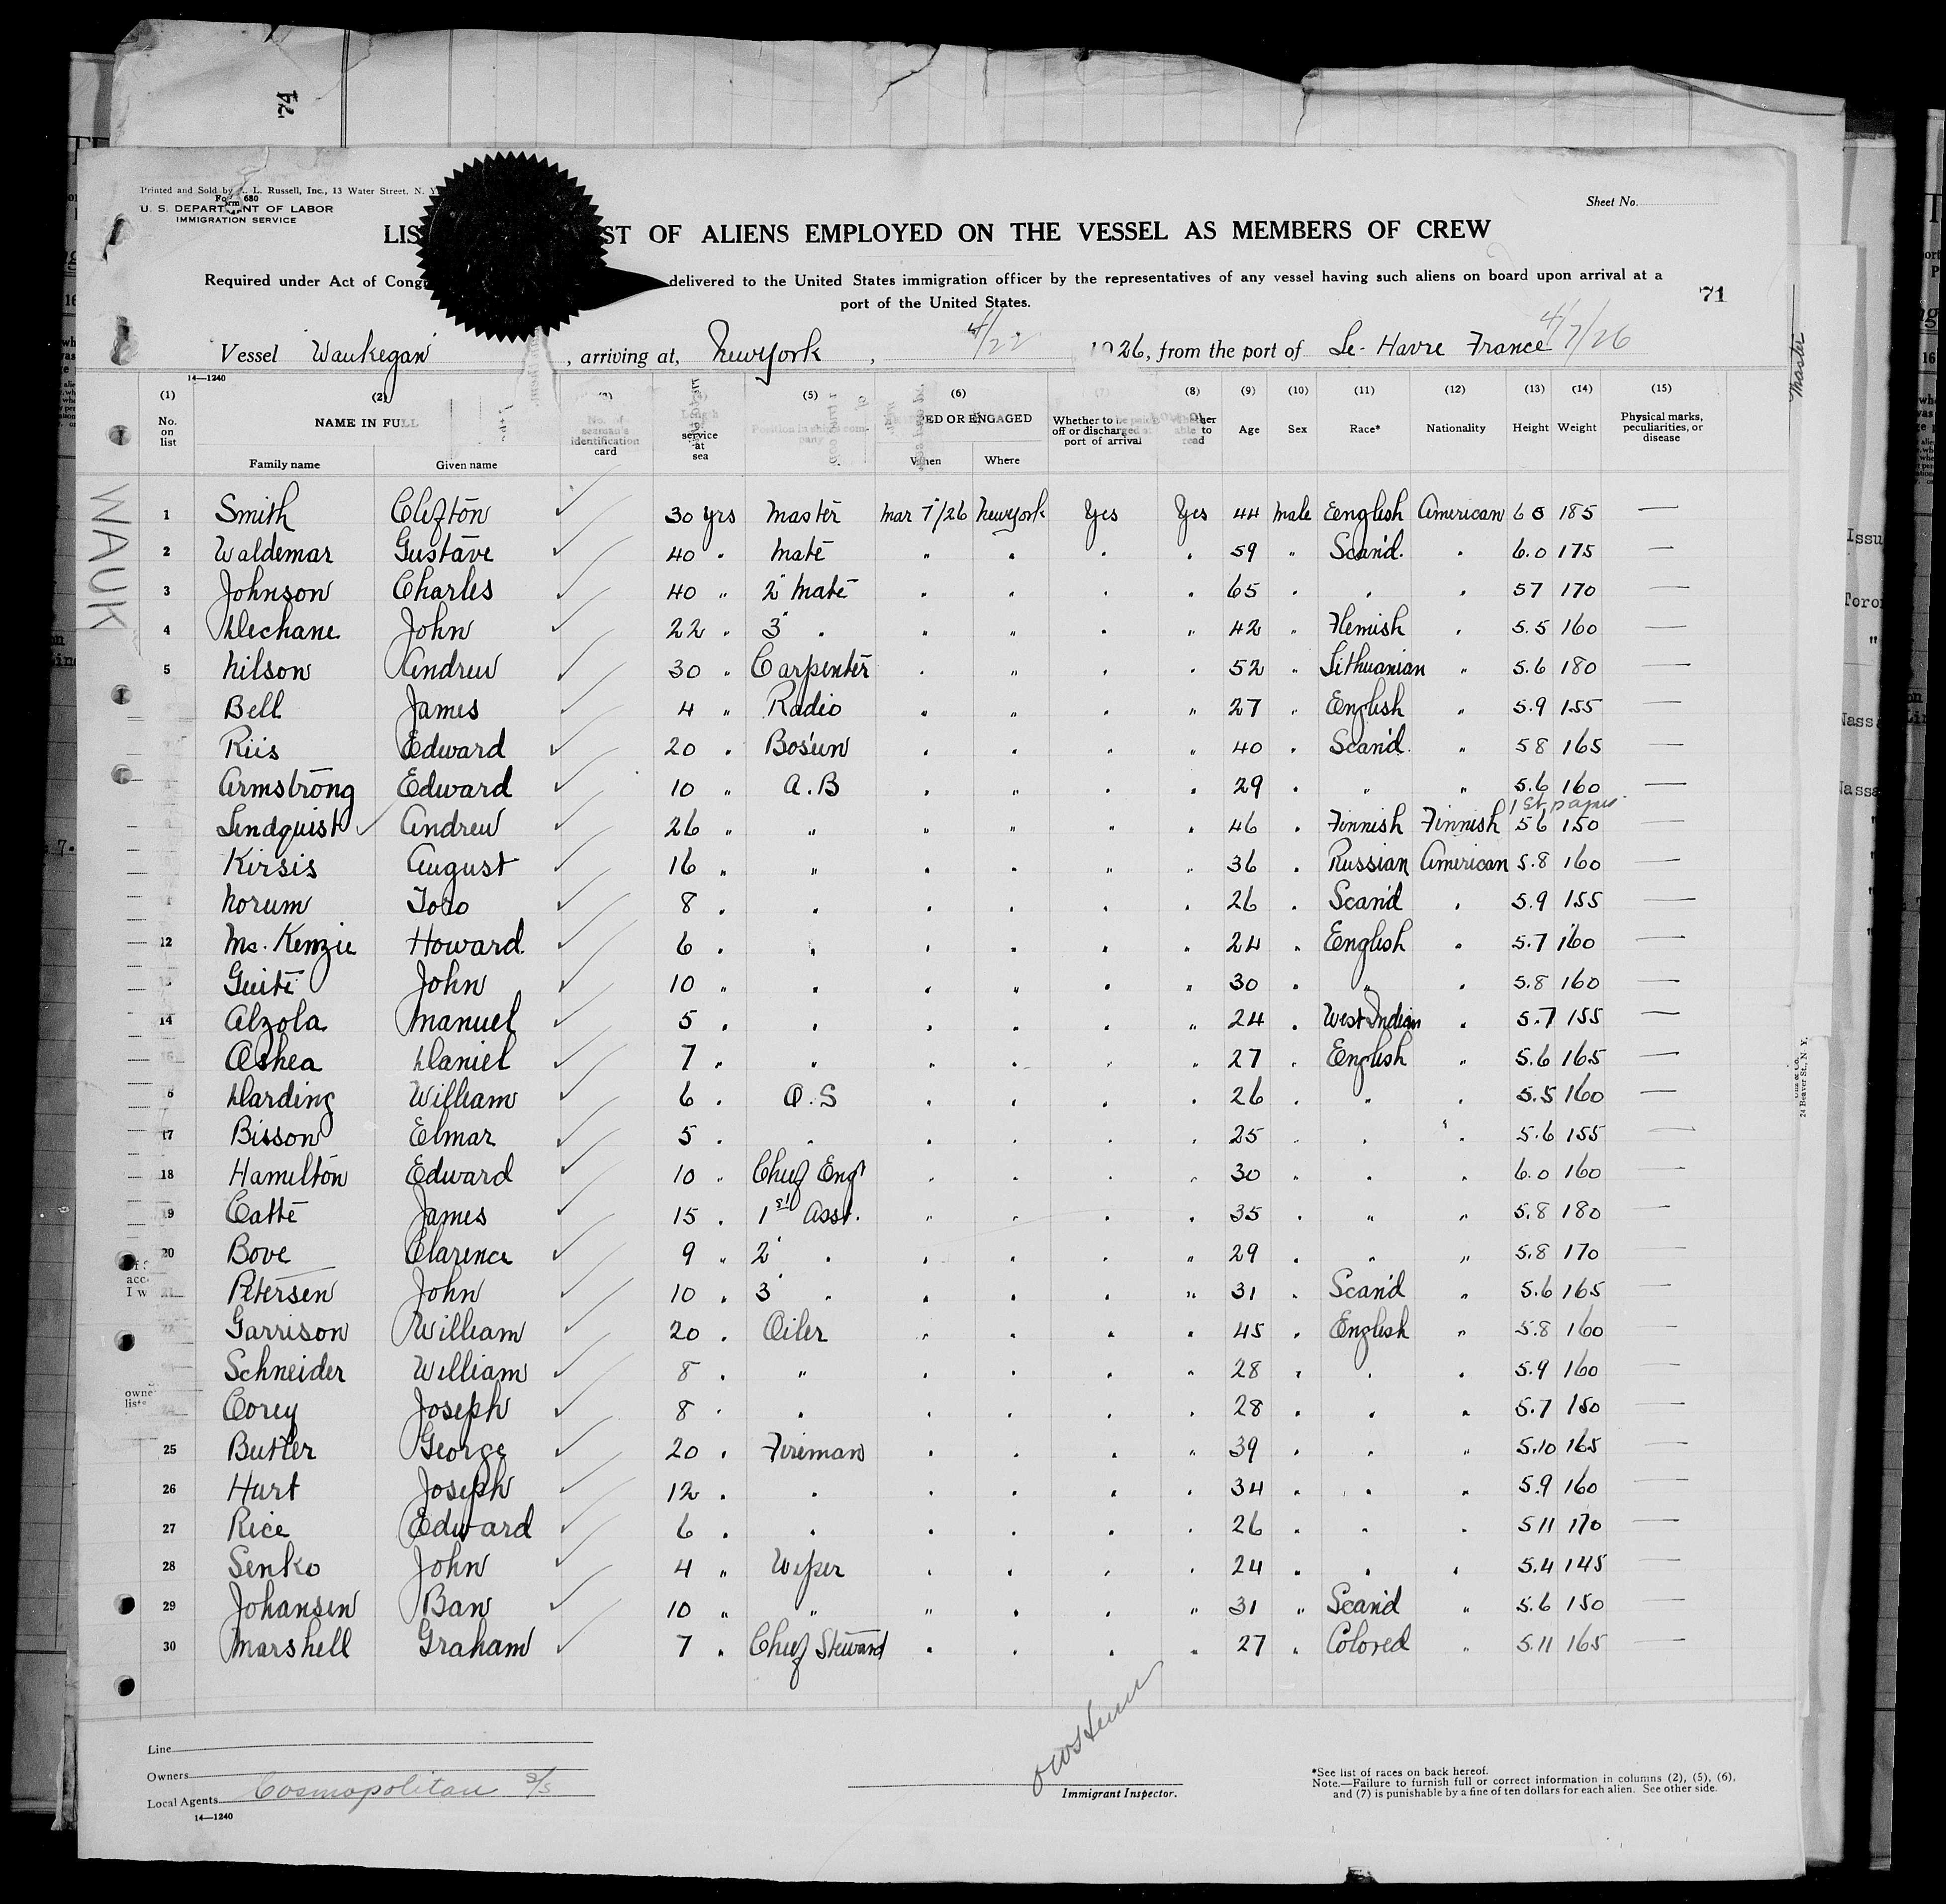 74
Printed and Sold by L. Russell, Inc., 13 Water Street, N. Y.
Form 680
U. S. DEPARTMENT OF LABOR
IMMIGRATION SERVICE
Sheet No.
LIS ST OF ALIENS EMPLOYED ON THE VESSEL AS MEMBERS OF CREW
Required under Act of Congr delivered to the United States immigration officer by the representatives of any vessel having such aliens on board upon arrival at a
port of the United States.
71
Vessel "Waukegan", arriving at, New york, 4/22 1926, from the port of Le-Havre France 4/7/26
Master
14—1240
(1) (2) (5) (6) (7) (8) (9) (10) (11) (12) (13) (14) (15)
No. on list NAME IN FULL No. of seaman's identification card Length service at sea Position in ship's company ED OR ENGAGED Whether to be paid off or discharged at port of arrival Whether able to read Age Sex Race* Nationality Height Weight Physical marks, peculiarities, or disease
Family name Given name When Where
WAUK
1 Smith Clifton 30 yrs Master Mar 7/26 New york Yes Yes 44 male English American 6 0 185 —
2 Waldemar Gustave 40 " Mate " " " " 59 " Scan'd. " 6.0 175 —
3 Johnson Charles 40 " 2" Mate " " " " 65 " " " 57 170 —
4 Dechane John 22 " 3" " " " " " 42 " Flemish " 5.5 160 —
5 Nilson Andrew 30 " Carpenter " " " " 52 " Lithuanian " 5.6 180 —
Bell James 4 " Radio " " " " 27 " English " 5.9 155 —
Riis Edward 20 " Bos'un " " " " 40 " Scan'd. " 58 165 —
Armstrong Edward 10 " A.B " " " " 29 " " " 5.6 160 —
1st paper
Lindquist Andrew 26 " " " " " " 46 " Finnish Finnish 56 150 —
Kirsis August 16 " " " " " " 36 " Russian American 5.8 160 —
Norum Toro 8 " " " " " " 26 " Scan'd " 5.9 155 —
12 Mc. Kenzie Howard 6 " " " " " " 24 " English " 5.7 160 —
Guite John 10 " " " " " " 30 " " " 5.8 160 —
14 Alzola Manuel 5 " " " " " " 24 " West Indian " 5.7 155 —
Oshea Daniel 7 " " " " " " 27 " English " 5.6 165 —
Harding William 6 " O.S " " " " 26 " " " 5.5 160 —
17 Bisson Elmar 5 " " " " " " 25 " " " 5.6 155 —
18 Hamilton Edward 10 " Chief Eng' " " " " 30 " " " 6.0 160 —
19 Catte James 15 " 1st Asst. " " " " 35 " " " 5.8 180 —
20 Bove Clarence 9 " 2" " " " " " 29 " " " 5.8 170 —
Petersen John 10 " 3" " " " " " 31 " Scan'd " 5.6 165 —
Garrison William 20 " Oiler " " " " 45 " English " 5.8 160 —
Schneider William 8 " " " " " " 28 " " " 5.9 160 —
Corey Joseph 8 " " " " " " 28 " " " 5.7 150 —
25 Butler George 20 " Fireman " " " " 39 " " " 5.10 165 —
26 Hurt Joseph 12 " " " " " " 34 " " " 5.9 160 —
27 Rice Edward 6 " " " " " " 26 " " " 5 11 170 —
28 Senko John 4 " Wiper " " " " 24 " " " 5.4 145 —
29 Johansen Ban 10 " " " " " " 31 " Scan'd " 5.6 150 —
30 Marshell Graham 7 " Chief Steward " " " " 27 " Colored " 5.11 165 —
Line
Owners
Local Agents Cosmopolitan S/S
14—1240
Immigrant Inspector.
*See list of races on back hereof.
Note.—Failure to furnish full or correct information in columns (2), (5), (6),
and (7) is punishable by a fine of ten dollars for each alien. See other side.
24 Beaver St., N. Y.